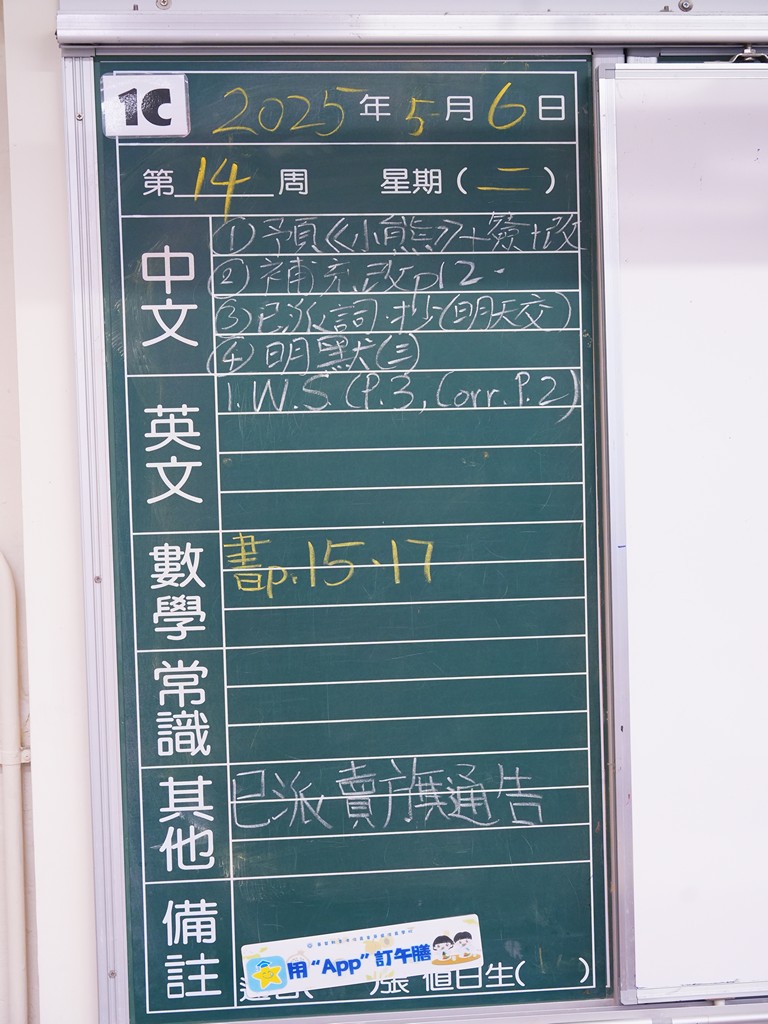 1C 2025年5月6日
第14周 星期(二)
中文
①預《小熊》+簽+改
②補充改p12.
③已派詞.抄(明天交)
④明默(三)
英文
1. W.S. (P.3, Corr. P.2)
數學
書p.15、17
常識
其他
已派賣旗通告
備註
用“App”訂午膳
張 值日生( )